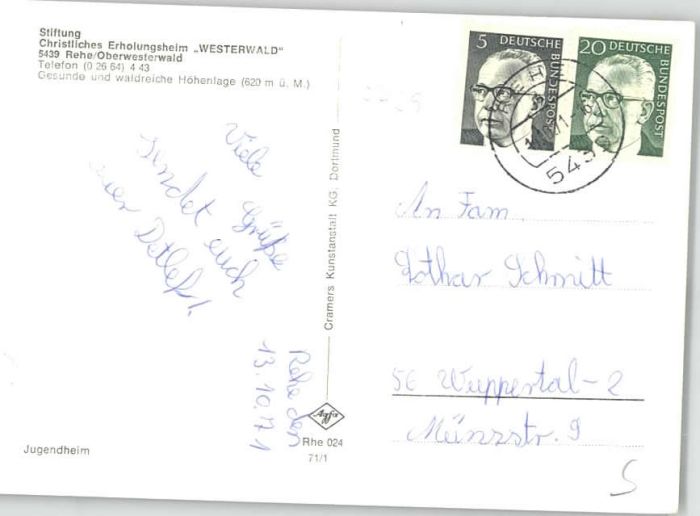 Stiftung
Christliches Erholungsheim „WESTERWALD"
5439 Rehe/Oberwesterwald
Telefon (0 26 64) 4 43
Gesunde und waldreiche Höhenlage (620 m ü. M.)
Viele Grüße
sendet euch
euer Detlef
Rehe den
13.10.71
Jugendheim
Cramers Kunstanstalt KG, Dortmund
Agfa
Rhe 024
71/1
5 DEUTSCHE BUNDESPOST
20 DEUTSCHE BUNDESPOST
An Fam.
Lothar Schmitt
56 Wuppertal-2
Münzstr. 9
S